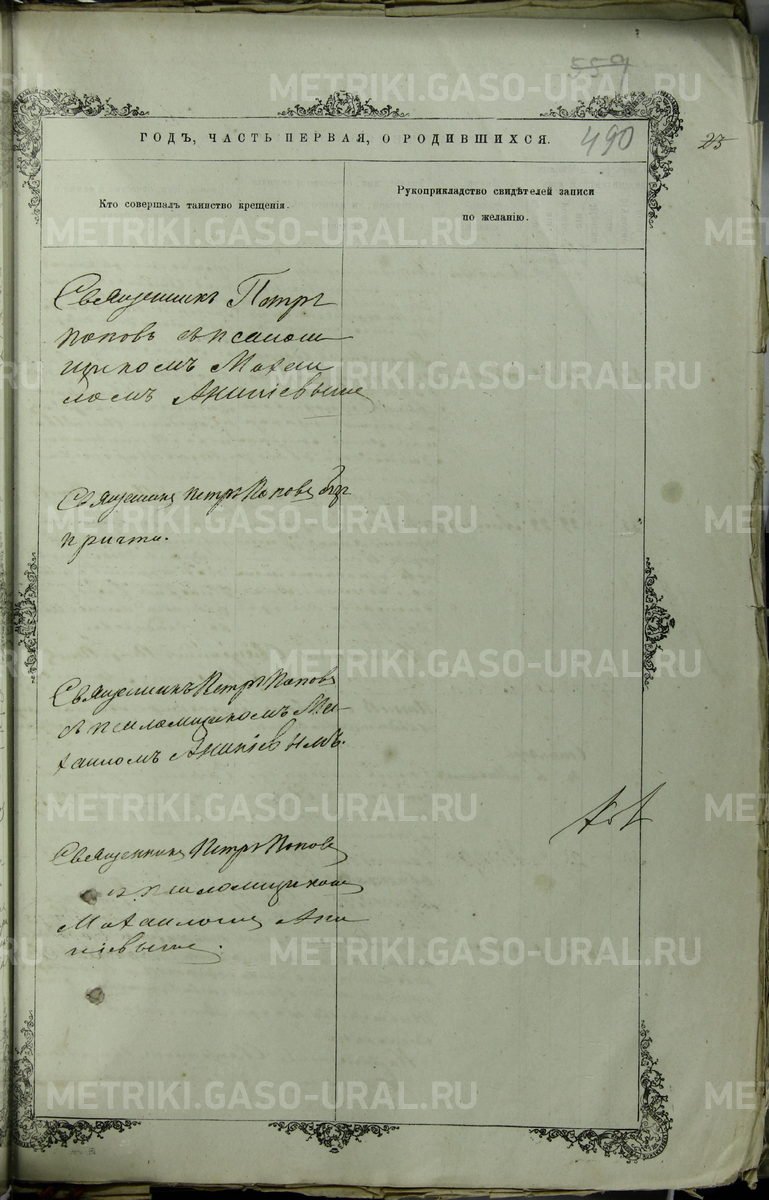 559
METRIKI.GASO-URAL.RU
ГОДЪ, ЧАСТЬ ПЕРВАЯ, О РОДИВШИХСЯ.
490
25
Кто совершалъ таинство крещенія.
Рукоприкладство свидѣтелей записи
по желанію.
Священникъ Петръ
Поповъ съ псалом
щикомъ Михаи
ломъ Ананіевымъ
Священникъ Петръ Поповъ безъ
причта.
Священникъ Петръ Поповъ
съ псаломщикомъ Ми-
хаиломъ Ананіевымъ.
Священникъ Петръ Поповъ
съ псаломщикомъ
Михаиломъ Ана
ніевымъ.